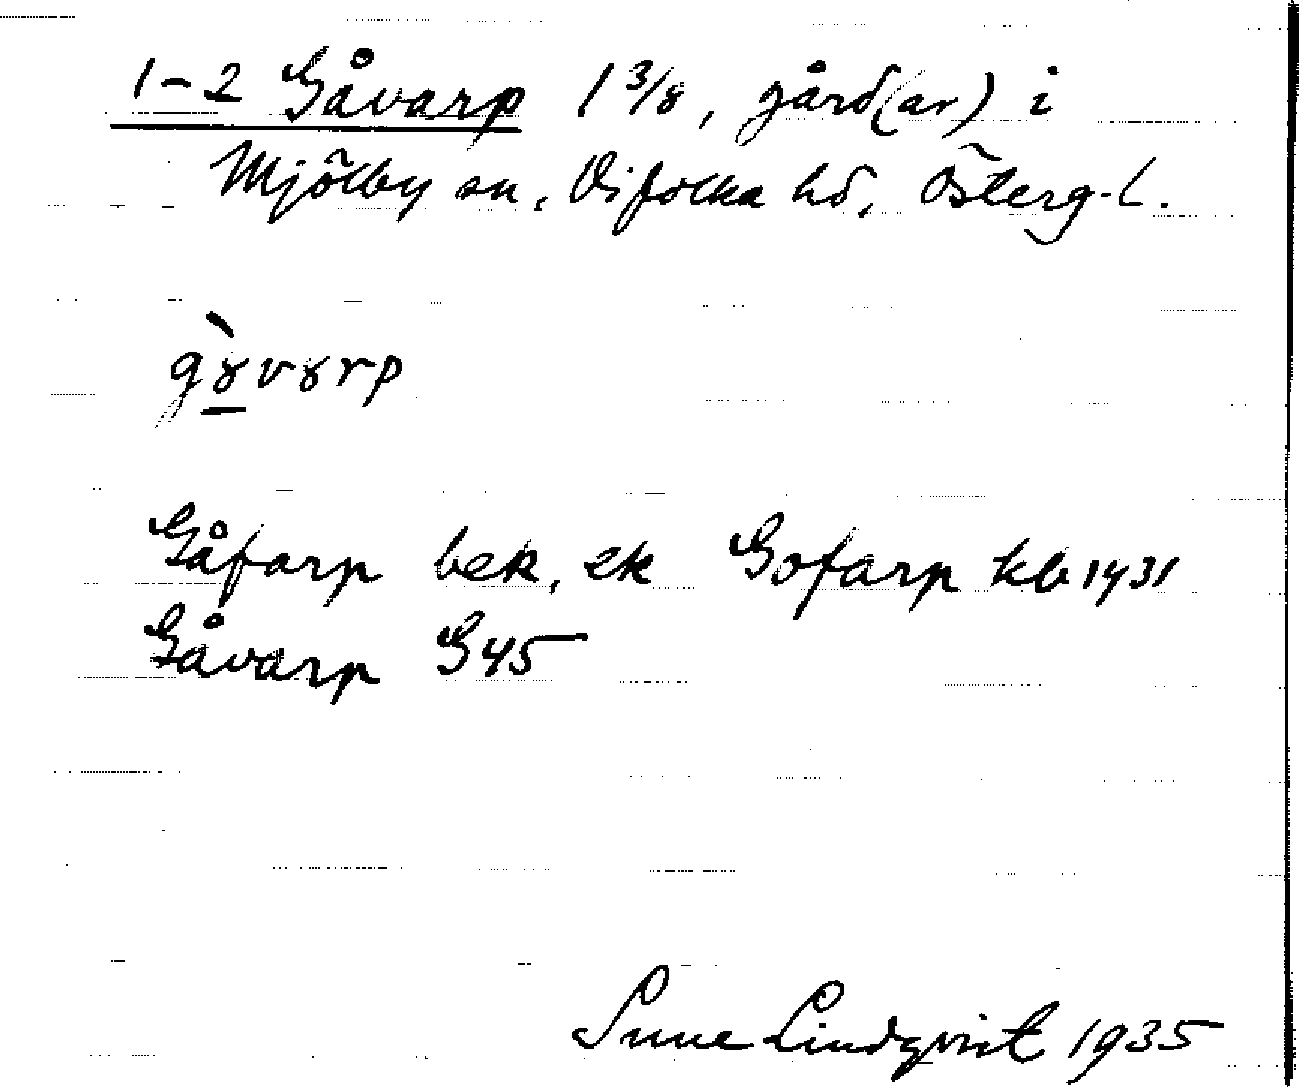 1-2 Gåvarp 1 3/8, gård(ar) i
Mjölby sn, Vifolka hd, Österg-l.
gɤ̀vɤrp
Gåfarp bek, ek Gofarp kb 1731
Gåvarp G45
Sune Lindqvist 1935